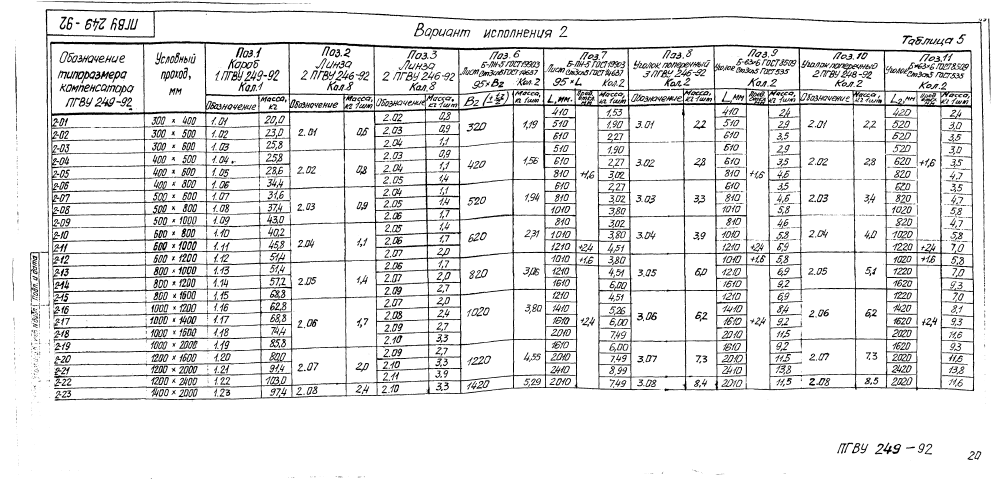 ПГВУ 249-92
Вариант исполнения 2
Таблица 5
Обозначение типоразмера компенсатора ПГВУ 249-92 | Условный проход, мм | Поз.1 Короб 1 ПГВУ 249-92 Кол.1 | Поз.2 Линза 2 ПГВУ 246-92 Кол.8 | Поз.3 Линза 2 ПГВУ 246-92 Кол.8 | Поз.6 Лист Б-ПН-3 ГОСТ 19903 Ст3пс5 ГОСТ 14637 95×B2 Кол.2 | Поз.7 Лист Б-ПН-3 ГОСТ 19903 Ст3пс5 ГОСТ 14637 95×L Кол.2 | Поз.8 Уголок поперечный 3 ПГВУ 246-92 Кол.2 | Поз.9 Уголок Б-63×6 ГОСТ 8509 Ст3пс5 ГОСТ 535 Кол.2 | Поз.10 Уголок поперечный 2 ПГВУ 248-92 Кол.2 | Поз.11 Уголок Б-63×6 ГОСТ 8509 Ст3пс5 ГОСТ 535 Кол.2
Обозначение | Масса, кг | Обозначение | Масса, кг 1шт | Обозначение | Масса, кг 1шт | B2 | Масса, кг 1шт | L, мм | Масса, кг 1шт | Обозначение | Масса, кг 1шт | L, мм | Масса, кг 1шт | Обозначение | Масса, кг 1шт | L2, мм | Масса, кг 1шт
2-01 300 × 400 1.01 20,0 2.01 0,6 2.02 0,8 320 1,19 410 +1,6 1,53 3.01 2,2 410 +1,6 2,4 2.01 2,2 420 +1,6 2,4
2-02 300 × 500 1.02 23,0 2.03 0,9 510 1,90 510 2,9 520 3,0
2-03 300 × 600 1.03 25,8 2.04 1,1 610 2,27 610 3,5 620 3,5
2-04 400 × 500 1.04 25,8 2.02 0,8 2.03 0,9 420 1,56 510 1,90 3.02 2,8 510 2,9 2.02 2,8 520 3,0
2-05 400 × 600 1.05 28,6 2.04 1,1 610 2,27 610 3,5 620 3,5
2-06 400 × 800 1.06 34,4 2.05 1,4 810 3,02 810 4,6 820 4,7
2-07 500 × 600 1.07 31,6 2.03 0,9 2.04 1,1 520 1,94 610 2,27 3.03 3,3 610 3,5 2.03 3,4 620 3,5
2-08 500 × 800 1.08 37,4 2.05 1,4 810 3,02 810 4,6 820 4,7
2-09 500 × 1000 1.09 43,0 2.06 1,7 1010 3,80 1010 5,8 1020 5,8
2-10 600 × 800 1.10 40,2 2.04 1,1 2.05 1,4 620 2,31 810 3,02 3.04 3,9 810 4,6 2.04 4,0 820 4,7
2-11 600 × 1000 1.11 45,8 2.06 1,7 1010 3,80 1010 5,8 1020 5,8
2-12 600 × 1200 1.12 51,4 2.07 2,0 1210 +2,4 4,51 1210 +2,4 6,9 1220 +2,4 7,0
2-13 800 × 1000 1.13 51,4 2.05 1,4 2.06 1,7 820 3,06 1010 +1,6 3,80 3.05 6,0 1010 +1,6 5,8 2.05 5,1 1020 +1,6 5,8
2-14 800 × 1200 1.14 57,2 2.07 2,0 1210 +2,4 4,51 1210 +2,4 6,9 1220 +2,4 7,0
2-15 800 × 1600 1.15 68,8 2.09 2,7 1610 6,00 1610 9,2 1620 9,3
2-16 1000 × 1200 1.16 62,8 2.06 1,7 2.07 2,0 1020 3,80 1210 4,51 3.06 6,2 1210 6,9 2.06 6,2 1220 7,0
2-17 1000 × 1400 1.17 68,8 2.08 2,4 1410 5,26 1410 8,4 1420 8,1
2-18 1000 × 1600 1.18 74,4 2.09 2,7 1610 6,00 1610 9,2 1620 9,3
2-19 1000 × 2000 1.19 85,8 2.10 3,3 2010 7,49 2010 11,5 2020 11,6
2-20 1200 × 1600 1.20 80,0 2.07 2,0 2.09 2,7 1220 4,55 1610 6,00 3.07 7,3 1610 9,2 2.07 7,3 1620 9,3
2-21 1200 × 2000 1.21 91,4 2.10 3,3 2010 7,49 2010 11,5 2020 11,6
2-22 1200 × 2400 1.22 103,0 2.11 3,9 2410 8,99 2410 13,8 2420 13,8
2-23 1400 × 2000 1.23 97,4 2.08 2,4 2.10 3,3 1420 5,29 2010 7,49 3.08 8,4 2010 11,5 2.08 8,5 2020 11,6
ПГВУ 249-92
20